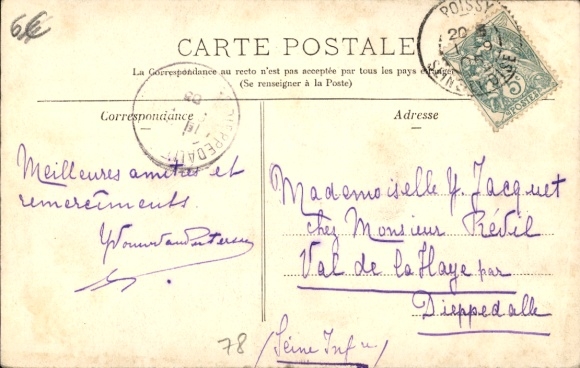 6€
CARTE POSTALE
La Correspondance au recto n'est pas acceptée par tous les pays étrangers
(Se renseigner à la Poste)
POISSY
20
SEINE-ET-OISE
5c
Correspondance
DIEPPEDALLE
Adresse
Meilleures amitiés et
remerciments.
Mademoiselle Y. Jacquet
chez Monsieur
Val de la Haye par
Dieppedalle
(Seine Infre)
78